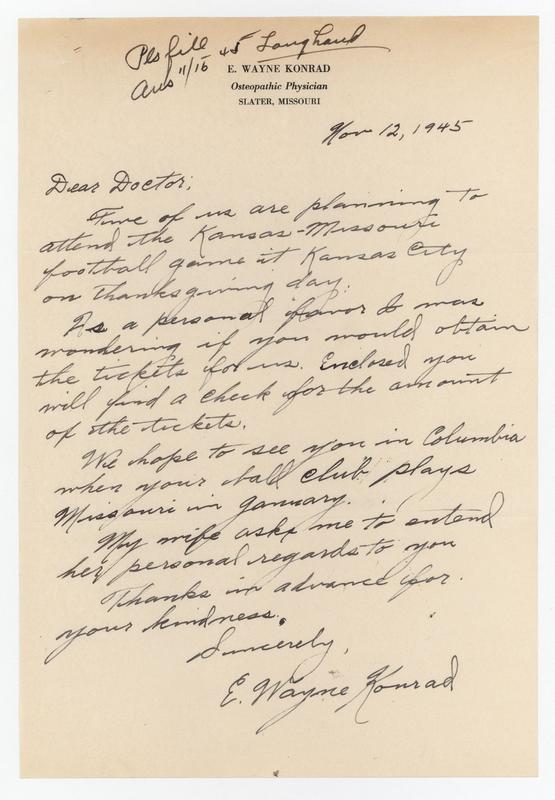 Pls file
Ans 11/15 45 Longhand
E. WAYNE KONRAD
Osteopathic Physician
SLATER, MISSOURI
Nov 12, 1945
Dear Doctor;
Five of us are planning to
attend the Kansas-Missouri
football game at Kansas City
on Thanksgiving day.
As a personal favor I was
wondering if you would obtain
the tickets for us. Enclosed you
will find a check for the amount
of the tickets.
We hope to see you in Columbia
when your ball club plays
Missouri in January.
My wife asks me to extend
her personal regards to you
Thanks in advance for
your kindness.
Sincerely,
E. Wayne Konrad